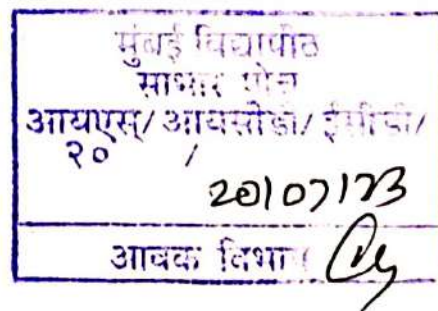 मुंबई विद्यापीठ
साभार पोच
आयएस्/ आयसीडी/ ईसीडी/
२० /
20/07/23
आवक विभाग